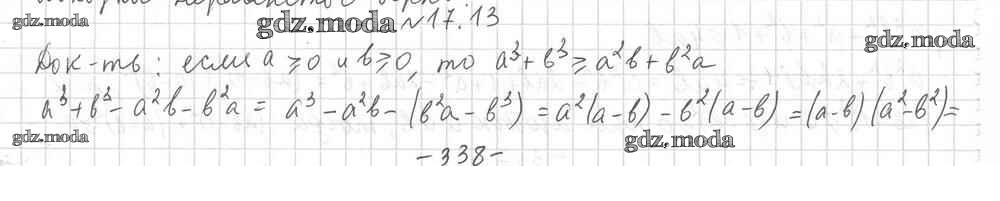 gdz.moda
gdz.moda №17.13
gdz.moda
Док-ть: если a ⩾0 и b⩾0, то a³+b³⩾a²b+b²a
a³+b³-a²b-b²a = a³-a²b-(b²a-b³)=a²(a-b)-b²(a-b)=(a-b)(a²-b²)=
gdz.moda
gdz.moda
-338-